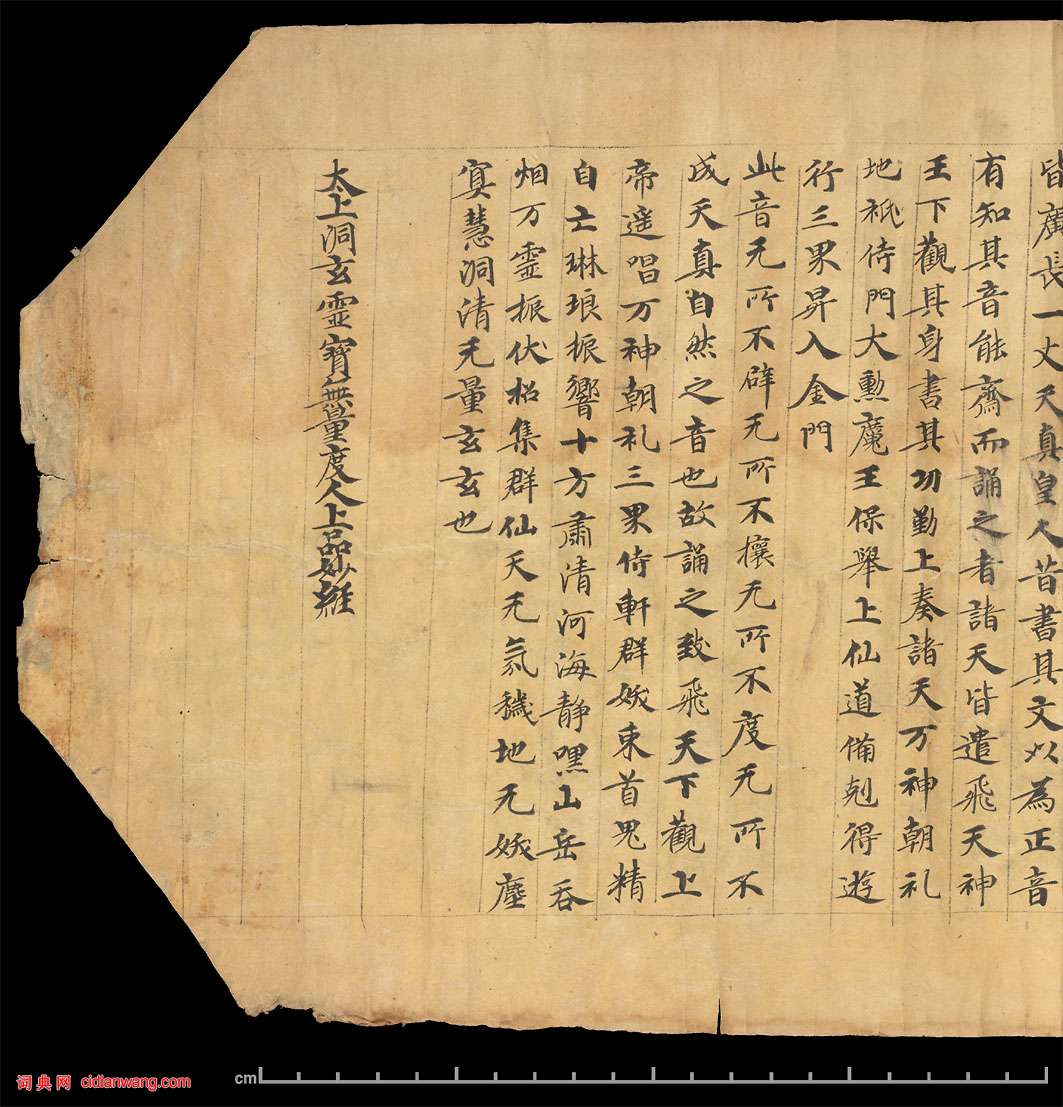 皆廣長一丈天真皇人昔書其文以為正音
有知其音能齋而誦之者諸天皆遣飛天神
王下觀其身書其功勤上奏諸天万神朝礼
地祇侍門大勳魔王保舉上仙道備剋得遊
行三界昇入金門
此音无所不辟无所不攘无所不度无所不
成天真自然之音也故誦之致飛天下觀上
帝遥唱万神朝礼三界侍軒群妖束首鬼精
自亡琳琅振響十方肅清河海静嘿山岳吞
烟万靈振伏招集群仙天无氛穢地无妖塵
冥慧洞清无量玄玄也
太上洞玄靈寳無量度人上品妙經
词典网 cidianwang.com
cm